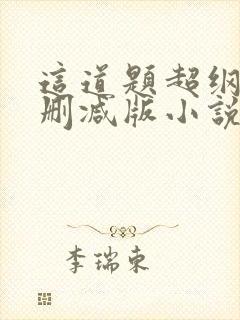 這道題超纲
删减版小說
李瑞東